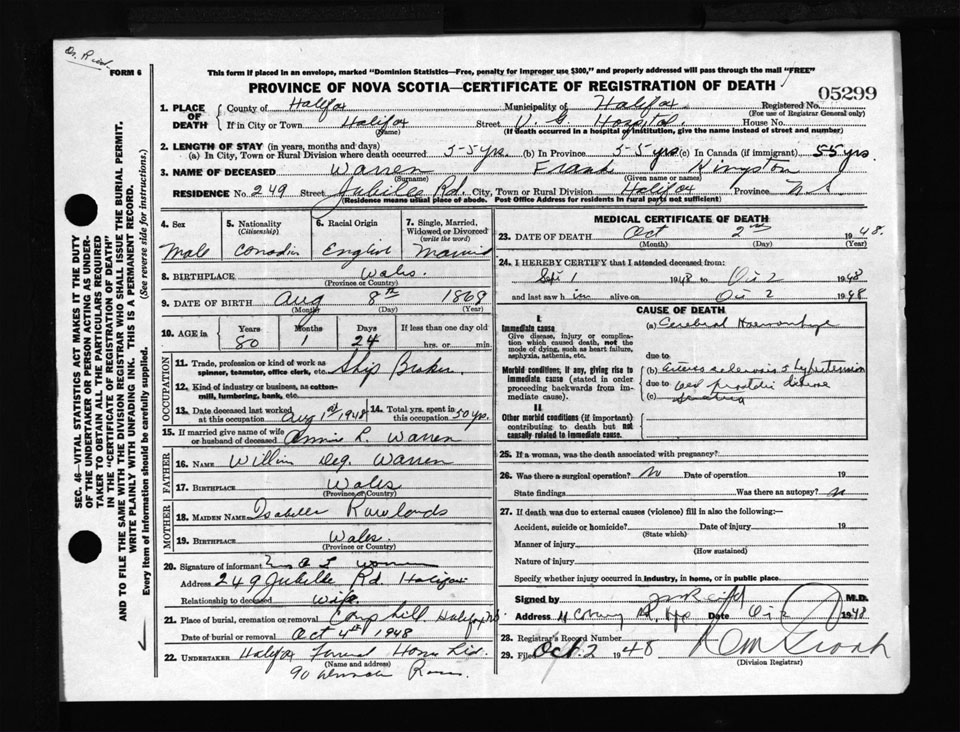 Dr. Reid.
FORM 6
This form if placed in an envelope, marked "Dominion Statistics—Free, penalty for improper use $300," and properly addressed will pass through the mail "FREE"
PROVINCE OF NOVA SCOTIA—CERTIFICATE OF REGISTRATION OF DEATH
05299
1. PLACE OF DEATH
County of Halifax Municipality of Halifax Registered No.
(For use of Registrar General only)
If in City or Town Halifax Street V. G. Hospital. House No.
(Name) (If death occurred in a hospital or institution, give the name instead of street and number)
2. LENGTH OF STAY (in years, months and days)
(a) In City, Town or Rural Division where death occurred 55 yrs. (b) In Province 55 yrs. (c) In Canada (if immigrant) 55 yrs.
3. NAME OF DECEASED Warren Frank Kingston
(Surname) (Given name or names)
RESIDENCE No. 249 Street Jubilee Rd. City, Town or Rural Division Halifax Province N S
(Residence means usual place of abode. Post Office Address for residents in rural parts not sufficient)
4. Sex
Male
5. Nationality
(Citizenship)
Canadian
6. Racial Origin
English
7. Single, Married, Widowed or Divorced
(write the word)
Married
8. BIRTHPLACE Wales.
(Province or Country)
9. DATE OF BIRTH Aug 8th 1868
(Month) (Day) (Year)
10. AGE in Years Months Days If less than one day old
80 1 24 hrs. or min.
OCCUPATION
11. Trade, profession or kind of work as spinner, teamster, office clerk, etc. Ship Broker
12. Kind of industry or business, as cotton-mill, lumbering, bank, etc.
13. Date deceased last worked at this occupation Aug 1st 1948
14. Total yrs. spent in this occupation 50 yrs.
15. If married give name of wife or husband of deceased Annie L. Warren
FATHER
16. NAME William Warren
17. BIRTHPLACE Wales
(Province or Country)
MOTHER
18. MAIDEN NAME Isabella Rowlands
19. BIRTHPLACE Wales.
(Province or Country)
20. Signature of informant A L Warren
Address 249 Jubilee Rd. Halifax
Relationship to deceased wife
21. Place of burial, cremation or removal Camp hill. Halifax N.S.
Date of burial or removal Oct 4th 1948
22. UNDERTAKER Halifax Funeral Home Ltd.
(Name and address)
90
MEDICAL CERTIFICATE OF DEATH
23. DATE OF DEATH Oct 2nd 1948.
(Month) (Day) (Year)
24. I HEREBY CERTIFY that I attended deceased from:
Sept 1 1948 to Oct 2 1948
and last saw him alive on Oct 2 1948
CAUSE OF DEATH
I.
Immediate cause
Give disease, injury or complication which caused death, not the mode of dying, such as heart failure, asphyxia, asthenia, etc.
(a) Cerebral Haemorrhage
due to
Morbid conditions, if any, giving rise to immediate cause (stated in order proceeding backwards from immediate cause).
(b) Arterio sclerosis & hypertension
due to
(c)
II.
Other morbid conditions (if important) contributing to death but not causally related to immediate cause.
25. If a woman, was the death associated with pregnancy?
26. Was there a surgical operation? No Date of operation 19
State findings Was there an autopsy? No
27. If death was due to external causes (violence) fill in also the following:—
Accident, suicide or homicide? Date of injury 19
(State which)
Manner of injury
(How sustained)
Nature of injury
Specify whether injury occurred in industry, in home, or in public place.
Signed by J W Reid M.D.
Address Coburg Rd. Hfx Date Oct 2 1948
28. Registrar's Record Number
29. Filed Oct. 2 1948
(Division Registrar)
SEC. 46—VITAL STATISTICS ACT MAKES IT THE DUTY
OF THE UNDERTAKER OR PERSON ACTING AS UNDER-
TAKER TO OBTAIN ALL THE PARTICULARS REQUIRED
IN THE "CERTIFICATE OF REGISTRATION OF DEATH"
AND TO FILE THE SAME WITH THE DIVISION REGISTRAR WHO SHALL ISSUE THE BURIAL PERMIT.
WRITE PLAINLY WITH UNFADING INK. THIS IS A PERMANENT RECORD.
Every item of information should be carefully supplied. (See reverse side for instructions.)